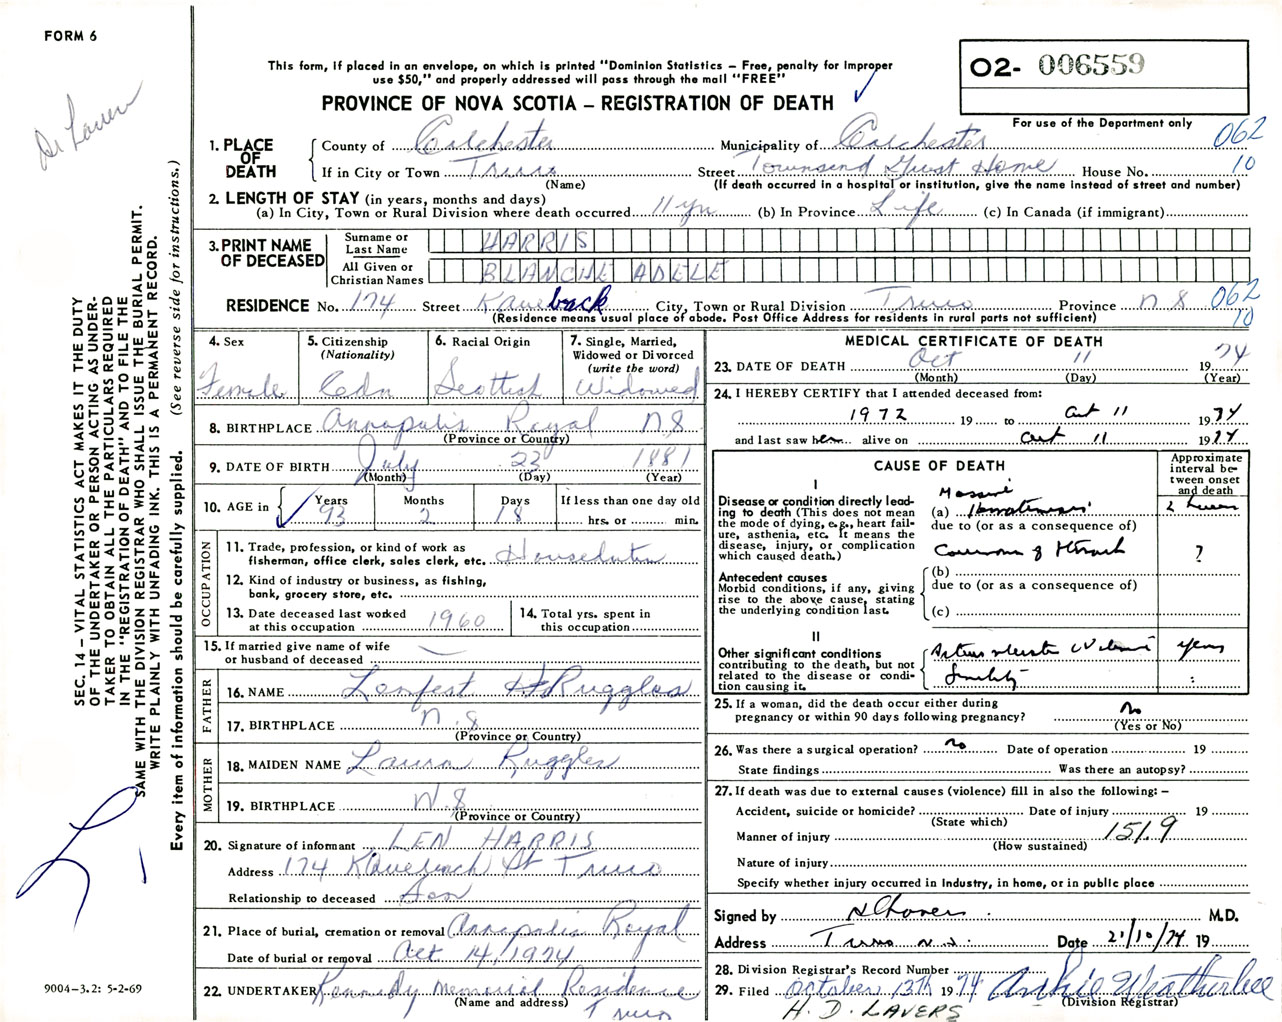 FORM 6
This form, if placed in an envelope, on which is printed "Dominion Statistics – Free, penalty for improper
use $50," and properly addressed will pass through the mail "FREE"
PROVINCE OF NOVA SCOTIA – REGISTRATION OF DEATH
02- 006559
For use of the Department only
Dr Lavers
SEC. 14 – VITAL STATISTICS ACT MAKES IT THE DUTY
OF THE UNDERTAKER OR PERSON ACTING AS UNDER-
TAKER TO OBTAIN ALL THE PARTICULARS REQUIRED
IN THE "REGISTRATION OF DEATH" AND TO FILE THE
SAME WITH THE DIVISION REGISTRAR WHO SHALL ISSUE THE BURIAL PERMIT.
WRITE PLAINLY WITH UNFADING INK. THIS IS A PERMANENT RECORD.
Every item of information should be carefully supplied. (See reverse side for instructions.)
1. PLACE OF DEATH
County of Colchester Municipality of Colchester 062
If in City or Town Truro Street Townsend Guest Home House No. 10
(Name) (If death occurred in a hospital or institution, give the name instead of street and number)
2. LENGTH OF STAY (in years, months and days)
(a) In City, Town or Rural Division where death occurred 11 yrs (b) In Province Life (c) In Canada (if immigrant)
3. PRINT NAME OF DECEASED
Surname or Last Name HARRIS
All Given or Christian Names BLANCHE ADELE
RESIDENCE No. 174 Street Kaulback City, Town or Rural Division Truro Province N S 062
(Residence means usual place of abode. Post Office Address for residents in rural parts not sufficient) 10
4. Sex
Female
5. Citizenship
(Nationality)
Cdn
6. Racial Origin
Scottish
7. Single, Married,
Widowed or Divorced
(write the word)
Widowed
8. BIRTHPLACE Annapolis Royal N.S
(Province or Country)
9. DATE OF BIRTH July 23 1881
(Month) (Day) (Year)
10. AGE in
Years Months Days If less than one day old
93 2 18 hrs. or min.
OCCUPATION
11. Trade, profession, or kind of work as
fisherman, office clerk, sales clerk, etc. Houseduties
12. Kind of industry or business, as fishing,
bank, grocery store, etc.
13. Date deceased last worked
at this occupation 1960
14. Total yrs. spent in
this occupation
15. If married give name of wife
or husband of deceased —
FATHER
16. NAME Lenfest Ruggles
17. BIRTHPLACE N.S
(Province or Country)
MOTHER
18. MAIDEN NAME Laura Ruggles
19. BIRTHPLACE N.S
(Province or Country)
20. Signature of informant LEN HARRIS
Address 174 Kaulback St Truro
Relationship to deceased Son
21. Place of burial, cremation or removal Annapolis Royal
Date of burial or removal Oct 14, 1974
22. UNDERTAKER Kennedy Memorial Residence
(Name and address) Truro
MEDICAL CERTIFICATE OF DEATH
23. DATE OF DEATH Oct 11 1974
(Month) (Day) (Year)
24. I HEREBY CERTIFY that I attended deceased from:
1972 19 to Oct 11 1974
and last saw her alive on Oct 11 1974
CAUSE OF DEATH
Approximate
interval be-
tween onset
and death
I
Disease or condition directly lead-
ing to death (This does not mean
the mode of dying, e.g., heart fail-
ure, asthenia, etc. It means the
disease, injury, or complication
which caused death.)
Massive
(a) Hematemesis 2 hours
due to (or as a consequence of)
Carcinoma of Stomach ?
Antecedent causes
Morbid conditions, if any, giving
rise to the above cause, stating
the underlying condition last.
(b)
due to (or as a consequence of)
(c)
II
Other significant conditions
contributing to the death, but not
related to the disease or condi-
tion causing it.
years
Senility
25. If a woman, did the death occur either during
pregnancy or within 90 days following pregnancy? no
(Yes or No)
26. Was there a surgical operation? no Date of operation 19
State findings Was there an autopsy?
27. If death was due to external causes (violence) fill in also the following: –
Accident, suicide or homicide? Date of injury 19
(State which) 151.9
Manner of injury
(How sustained)
Nature of injury
Specify whether injury occurred in industry, in home, or in public place
Signed by H D Lavers M.D.
Address Truro N.S. Date 21/10/74 19
28. Division Registrar's Record Number
29. Filed October 13th 1974 Archie Weatherbee
(Division Registrar)
H. D. LAVERS
9004–3.2: 5-2-69